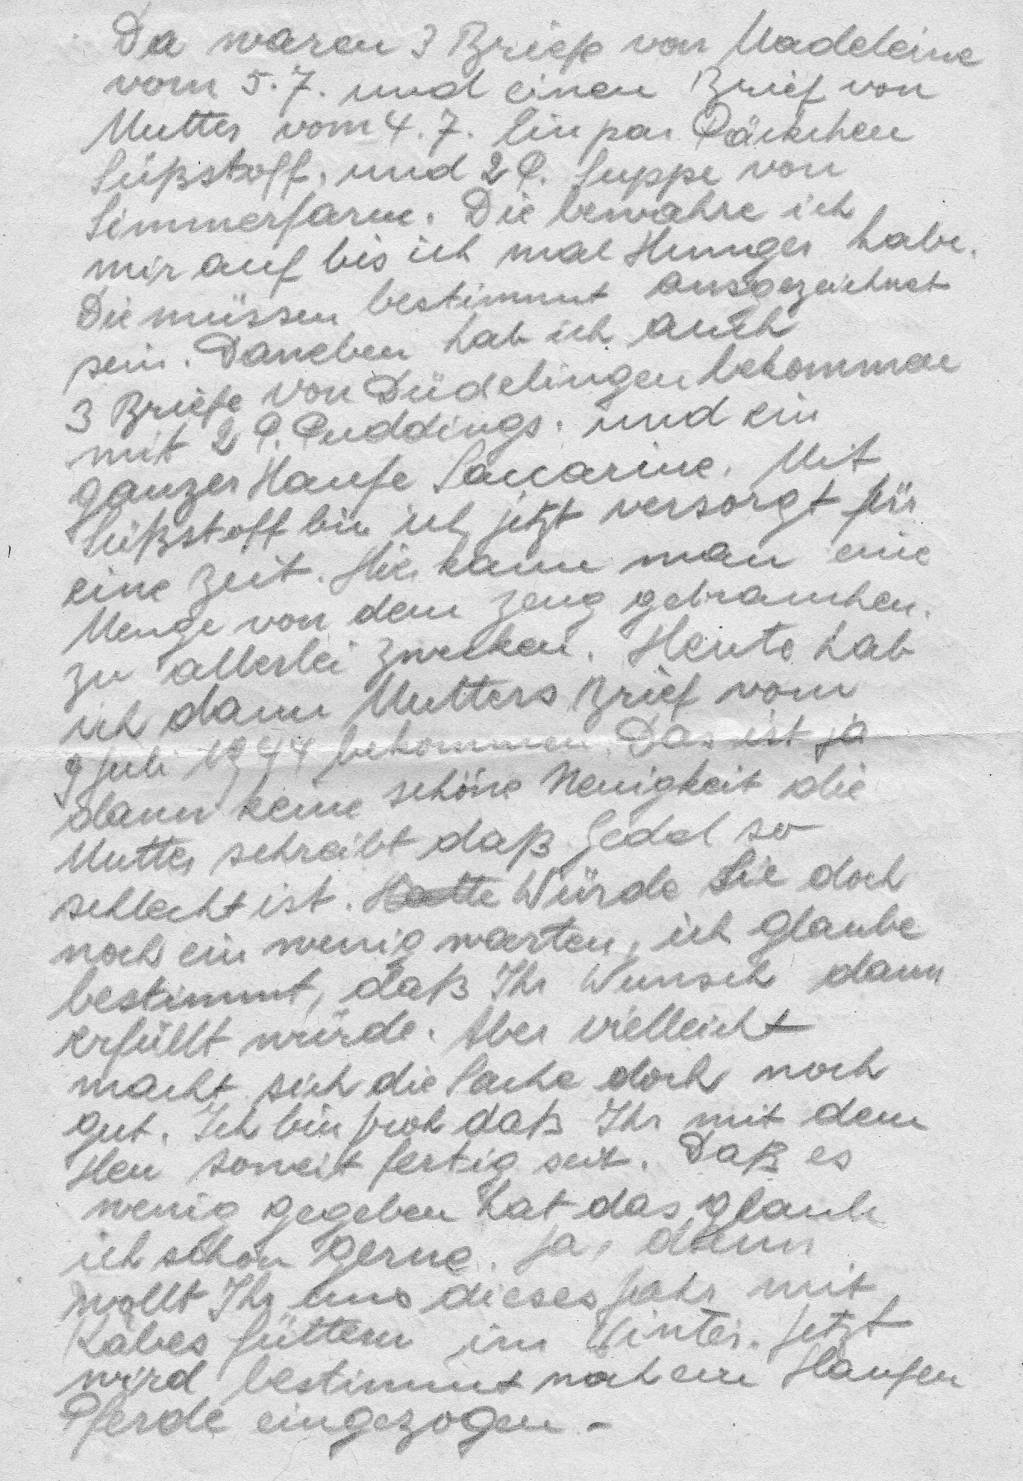 Da waren 3 Briefe von Madeleine
vom 5.7. und einen Brief von
Mutter vom 4.7. Ein par Päckchen
Süßstoff, und 2 P. Suppe von
Simmerfarm. Die bewahre ich
mir auf bis ich mal Hunger habe.
Die müssen bestimmt ausgezeichnet
sein. Daneben hab ich auch
3 Briefe von Düdelingen bekommen
mit 2 P. Puddings. und ein
ganzer Haufe Saccarine. Mit
Süßstoff bin ich jetzt versorgt für
eine Zeit. Hier kann man eine
Menge von dem Zeug gebrauchen.
zu allerlei Zwecken. Heute hab
ich dann Mutters Brief vom
9 Juli 1944 bekommen. Das ist ja
dann keine schöne Neuigkeit die
Mutter schreibt daß so
schlecht ist. Würde Sie doch
noch ein wenig warten, ich glaube
bestimmt, daß Ihr Wunsch dann
erfüllt würde. Aber vielleicht
macht sich die Sache doch noch
gut. Ich bin froh daß Ihr mit dem
Heu soweit fertig seit. Daß es
wenig gegeben hat das glaub
ich schon gerne. Ja, dann
wollt Ihr uns dieses Jahr mit
Kabes füttern im Winter. Jetzt
wird bestimmt noch ein Haufen
Pferde eingezogen –